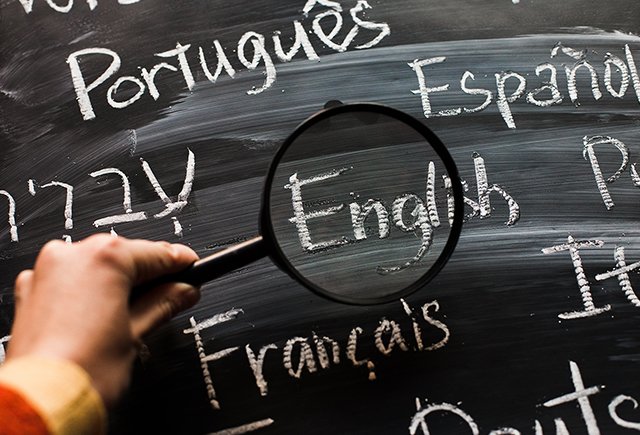 Português
Español
עברית
English
P
It
Français
Deuts